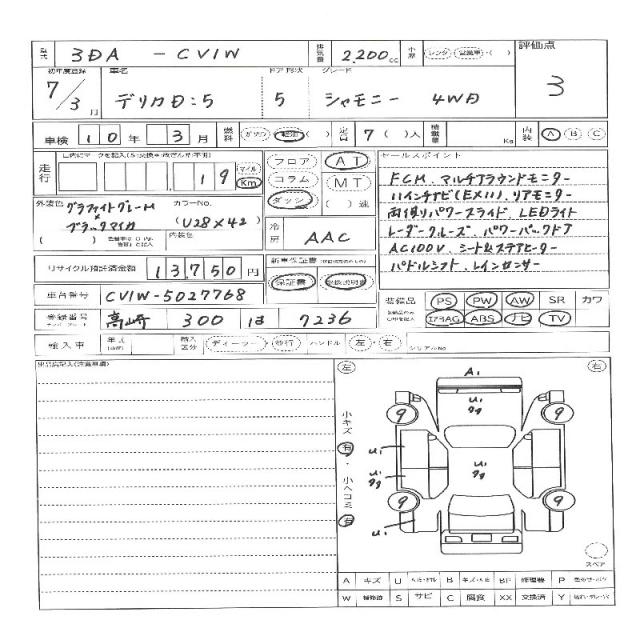 型式 3DA - CV1W 排気量 2,200cc 小原 レンタ・営業車・( ) 評価点
初年度登録 車名 ドア 形状 グレード
7/3月 デリカD:5 5 シャモニー 4WD 3
車検 10年 3月 燃料 ガソリン 軽油 ( ) 定員 7( )人 積載量 Kg 内装 A B C
走行 19 マイル Km フロア AT セールスポイント
コラム MT
ダッシ ( )速
FCM、マルチアラウンドモニター
11インチナビ(EX11)、リアモニター
両側パワースライド LEDライト
レーダークルーズ パワーバックドア
AC100V、シート&ステアヒーター
パドルシフト、レインセンサー
外装色 グラファイトグレーM × ブラックマイカ カラーNo. (U28×42)
( ) 内装色 冷房 AAC
リサイクル預託済金額 13750円 新車保証書 保証書 取扱説明書
車台番号 CV1W-5027768 装備品 PS PW AW SR カワ
登録番号 高崎 300 は 7236 エアBAG ABS ナビ TV
輸入車 年式 輸入区分 ディーラー・並行 ハンドル 左・右 シリアルNo
出品店記入(注意事項)
左 右
小キズ 有・小ヘコミ 有
A1
U1
9 9
U1
U1
U1
9 9
U1
スペア
A キズ U B キズ・ヘコミ BP 修理跡 P
W 補修跡 S サビ C 腐食 XX 交換済 Y